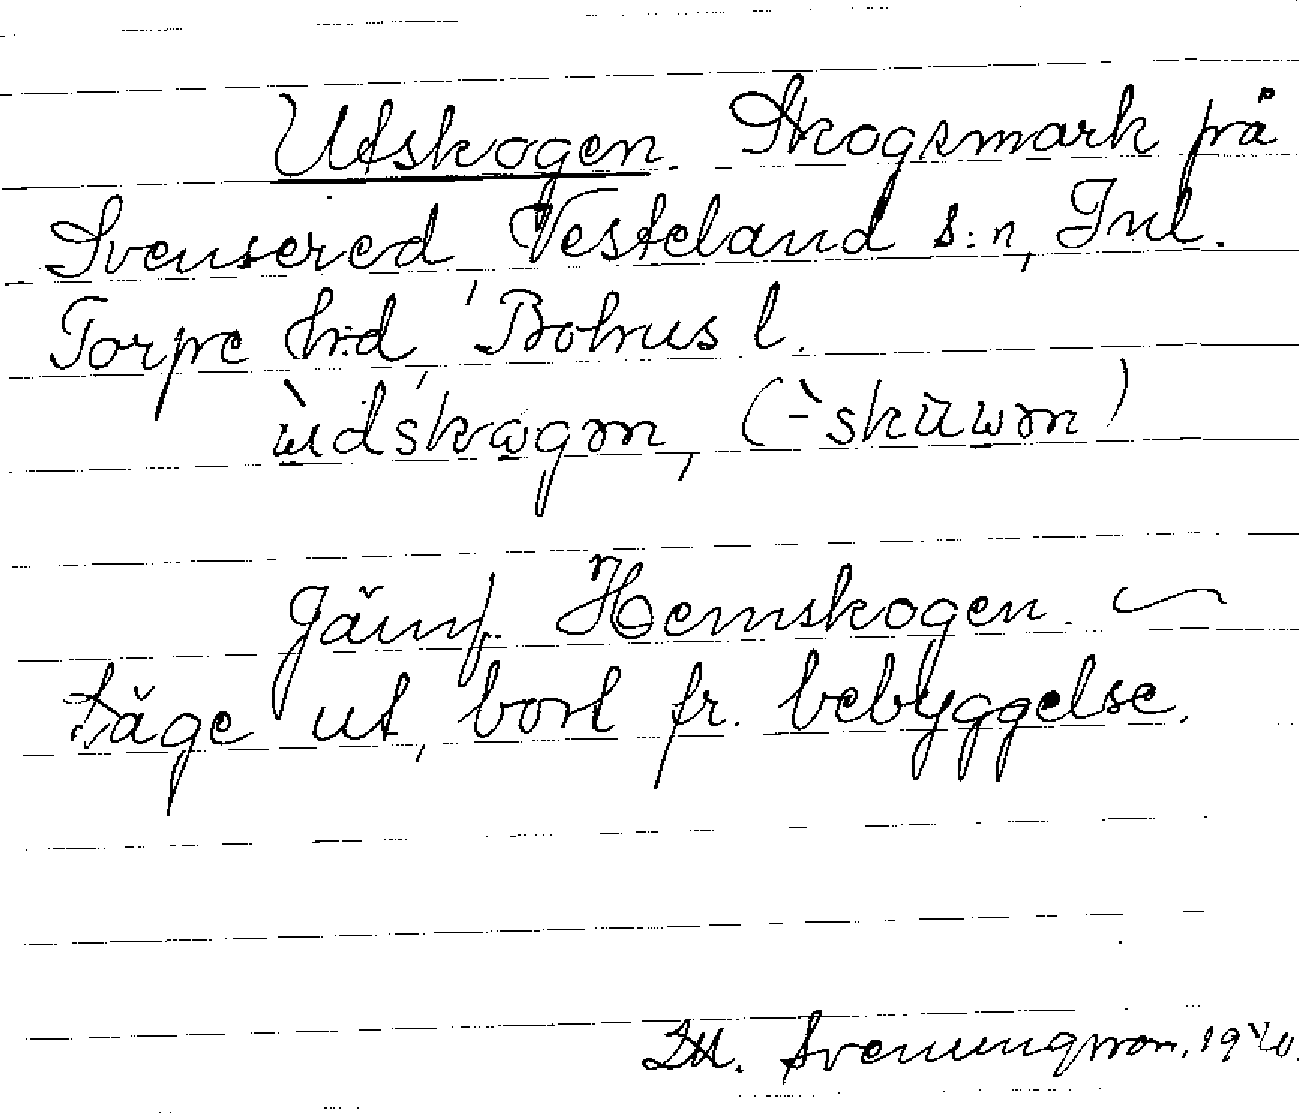 Utskogen. Skogsmark på
Svensered, Vesteland s:n, Inl.
Torpe hrd, Bohus l.
ùdskωgən, (-̀skūwən)
Jämf. Hemskogen ~
Läge ut, bort fr. bebyggelse.
Svenungsson. 1940.